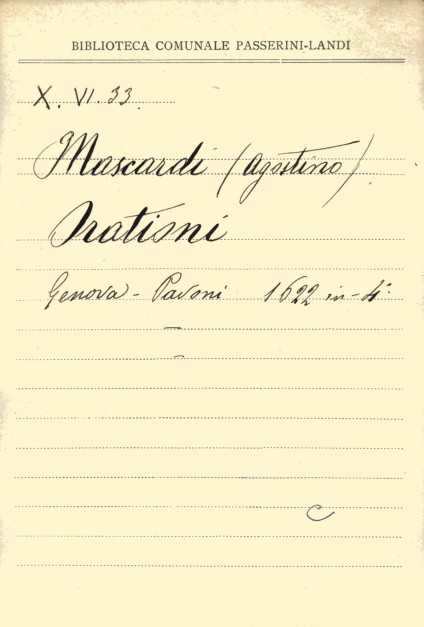 BIBLIOTECA COMUNALE PASSERINI-LANDI
X. VI. 33.
Mascardi (Agostino)
Orationi
Genova - Pavoni 1622 in-4°.
C